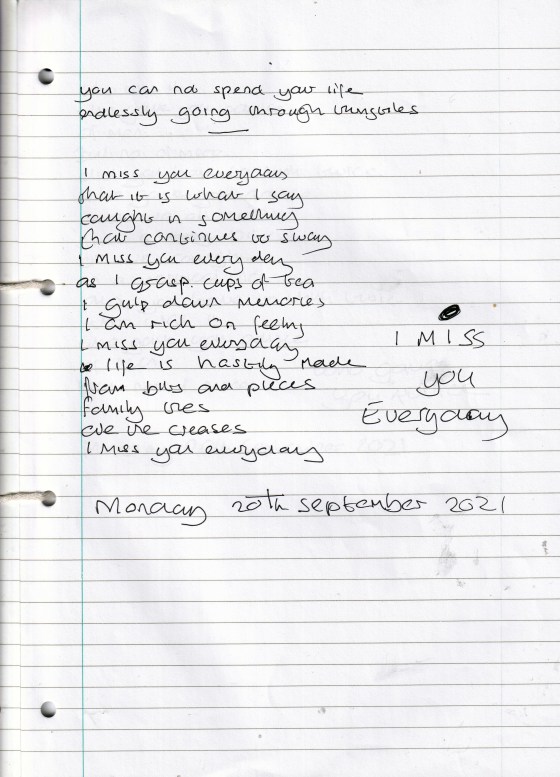 you can not spend your life
endlessly going through turnstiles
I miss you everyday
that it is what I say
caught in something
that continues to sway
I miss you every day
as I grasp cups of tea
I gulp down memories
I am rich on feeling
I miss you everyday
life is hastily made
from bits and pieces
family ties
are the creases
I miss you everyday
I MISS
you
Everyday
Monday 20th September 2021